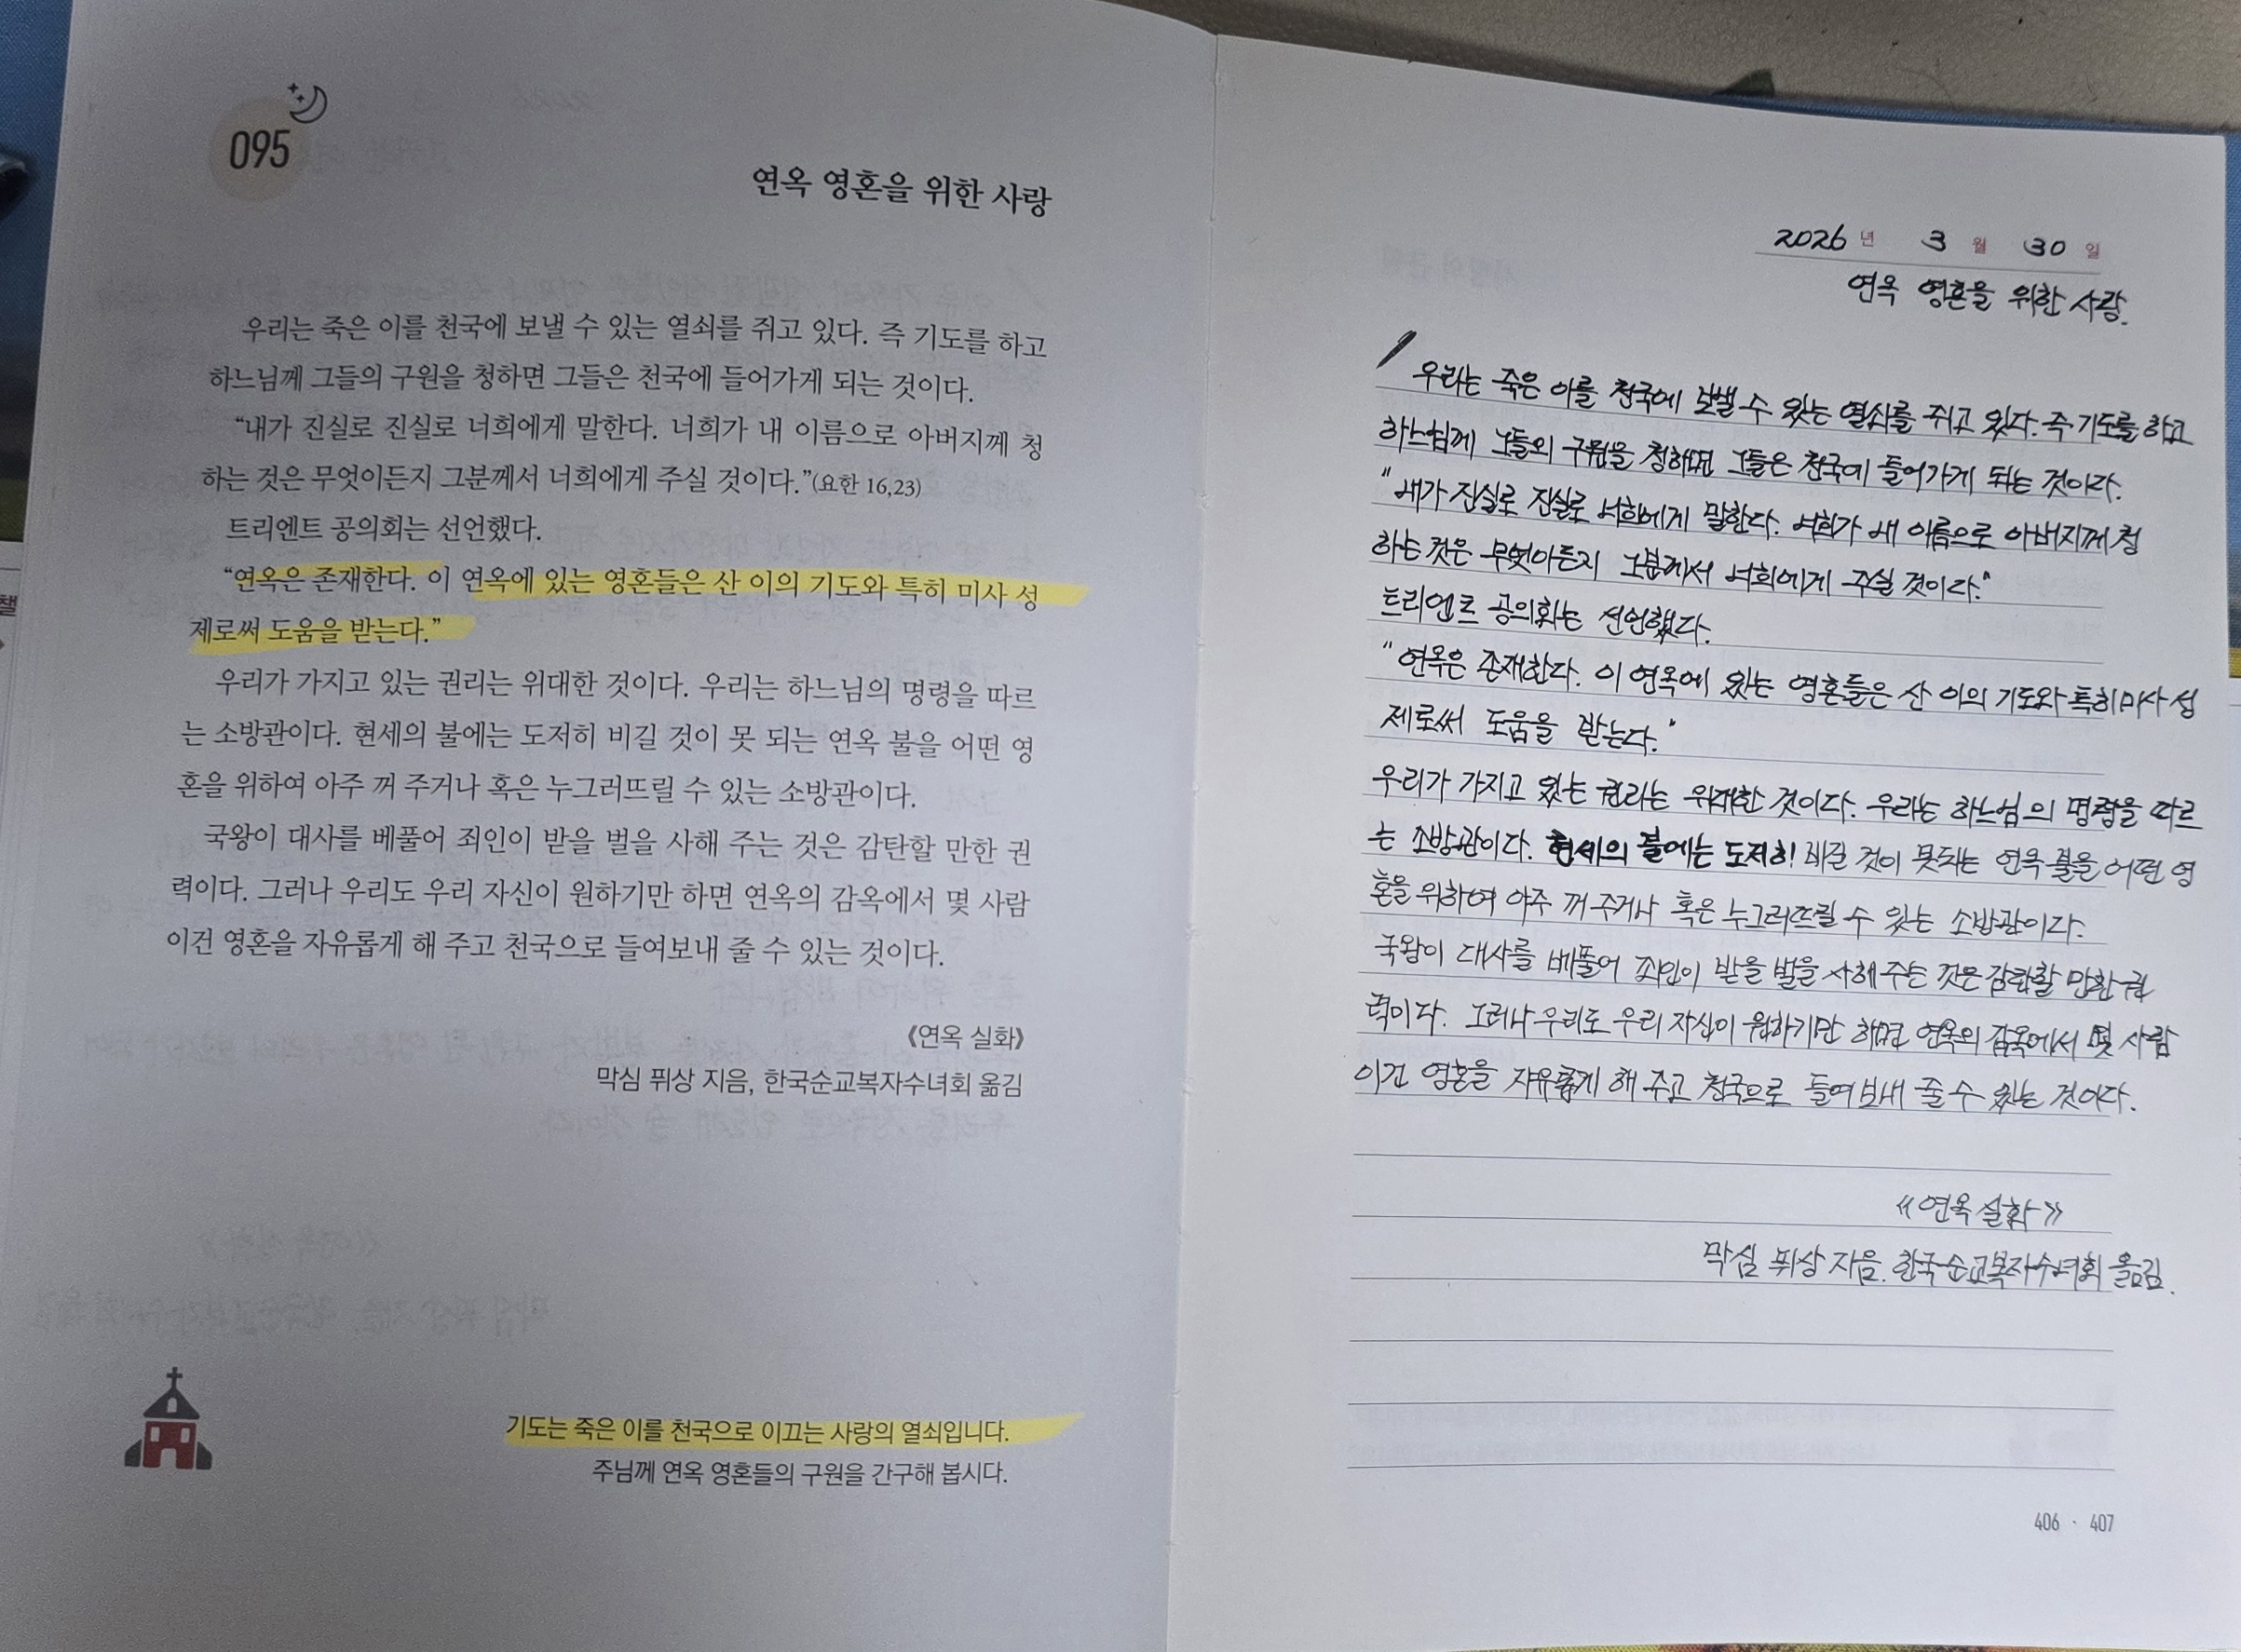 095
연옥 영혼을 위한 사랑
우리는 죽은 이를 천국에 보낼 수 있는 열쇠를 쥐고 있다. 즉 기도를 하고
하느님께 그들의 구원을 청하면 그들은 천국에 들어가게 되는 것이다.
“내가 진실로 진실로 너희에게 말한다. 너희가 내 이름으로 아버지께 청
하는 것은 무엇이든지 그분께서 너희에게 주실 것이다.”(요한 16,23)
트리엔트 공의회는 선언했다.
“연옥은 존재한다. 이 연옥에 있는 영혼들은 산 이의 기도와 특히 미사 성
제로써 도움을 받는다.”
우리가 가지고 있는 권리는 위대한 것이다. 우리는 하느님의 명령을 따르
는 소방관이다. 현세의 불에는 도저히 비길 것이 못 되는 연옥 불을 어떤 영
혼을 위하여 아주 꺼 주거나 혹은 누그러뜨릴 수 있는 소방관이다.
국왕이 대사를 베풀어 죄인이 받을 벌을 사해 주는 것은 감탄할 만한 권
력이다. 그러나 우리도 우리 자신이 원하기만 하면 연옥의 감옥에서 몇 사람
이건 영혼을 자유롭게 해 주고 천국으로 들여보내 줄 수 있는 것이다.
《연옥 실화》
막심 퓌상 지음, 한국순교복자수녀회 옮김
기도는 죽은 이를 천국으로 이끄는 사랑의 열쇠입니다.
주님께 연옥 영혼들의 구원을 간구해 봅시다.
2026 년 3 월 30 일
연옥 영혼을 위한 사랑.
우리는 죽은 이를 천국에 보낼 수 있는 열쇠를 쥐고 있다. 즉 기도를 하고
하느님께 그들의 구원을 청하면 그들은 천국에 들어가게 되는 것이다.
“내가 진실로 진실로 너희에게 말한다. 너희가 내 이름으로 아버지께 청
하는 것은 무엇이든지 그분께서 너희에게 주실 것이다.”
트리엔트 공의회는 선언했다.
“연옥은 존재한다. 이 연옥에 있는 영혼들은 산 이의 기도와 특히 미사 성
제로써 도움을 받는다.”
우리가 가지고 있는 권리는 위대한 것이다. 우리는 하느님의 명령을 따르
는 소방관이다. 현세의 불에는 도저히 비길 것이 못되는 연옥 불을 어떤 영
혼을 위하여 아주 꺼 주거나 혹은 누그러뜨릴 수 있는 소방관이다.
국왕이 대사를 베풀어 죄인이 받을 벌을 사해 주는 것은 감탄할 만한 권
력이다. 그러나 우리도 우리 자신이 원하기만 하면 연옥의 감옥에서 몇 사람
이건 영혼을 자유롭게 해 주고 천국으로 들여보내 줄 수 있는 것이다.
《연옥 실화》
막심 퓌상 지음. 한국순교복자수녀회 옮김.
406 · 407